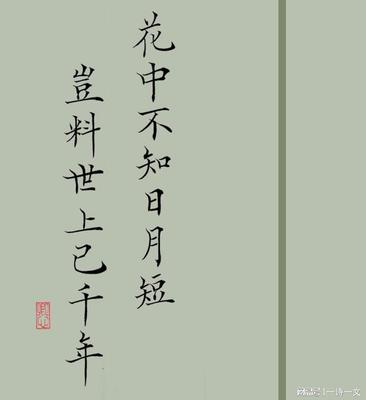 花中不知日月短
豈料世上已千年
一诗一文